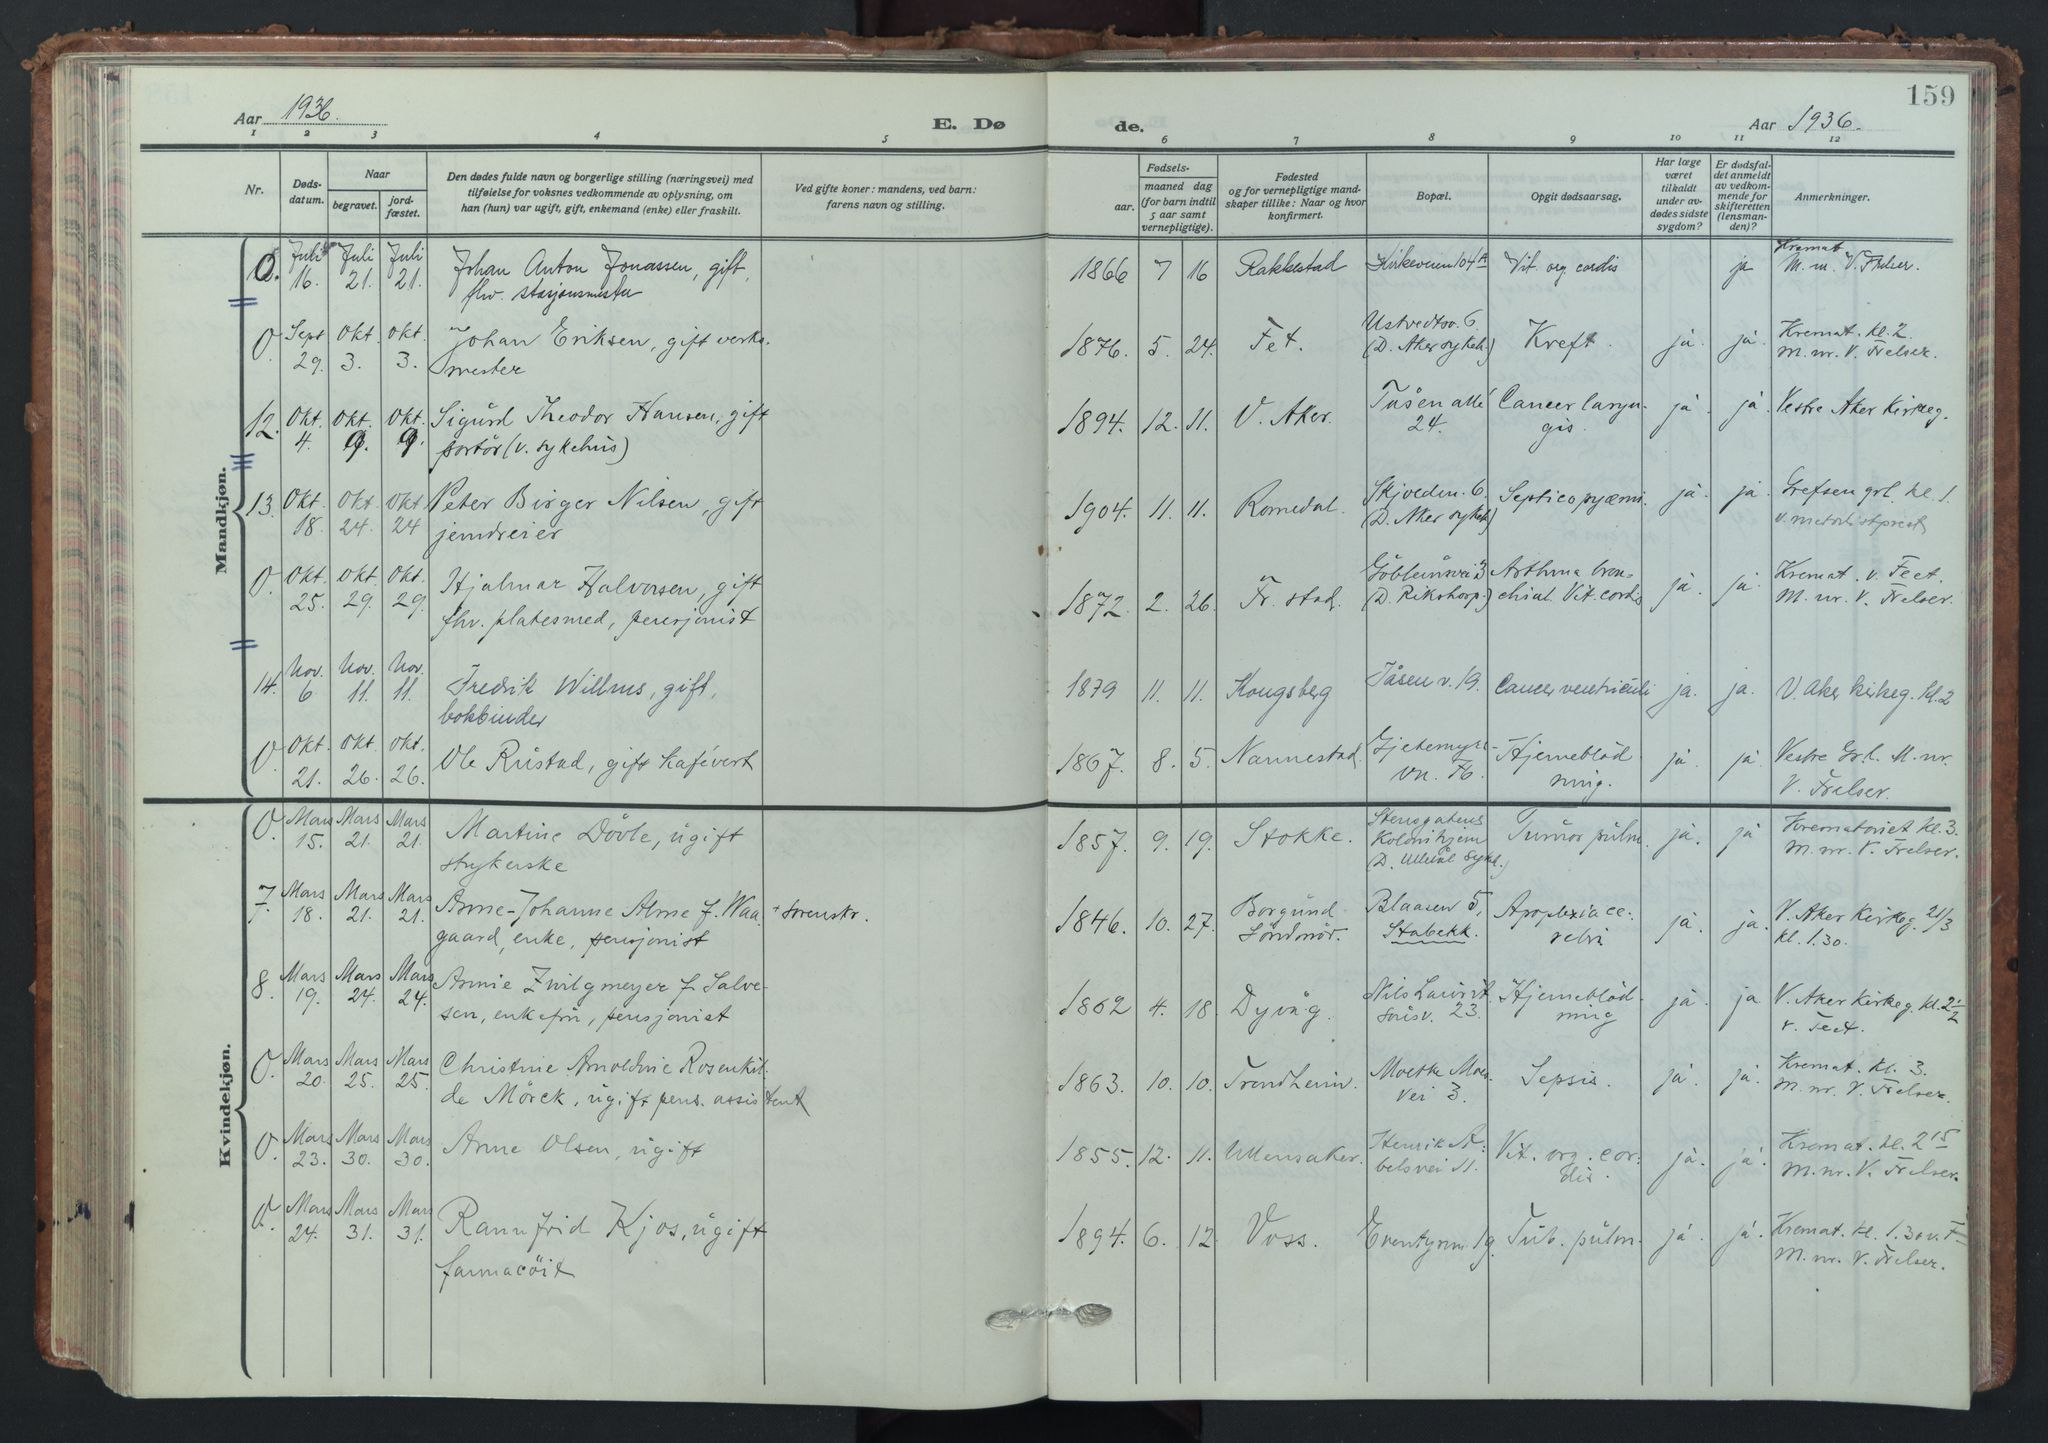 159
Aar 1936. E. Dø de. Aar 1936.
1 2 3 4 5 6 7 8 9 10 11 12
Nr. Døds-datum. Naar begravet. jord-fæstet. Den dødes fulde navn og borgerlige stilling (næringsvei) med tilføielse for voksnes vedkommende av oplysning, om han (hun) var ugift, gift, enkemand (enke) eller fraskilt. Ved gifte koner: mandens, ved barn: farens navn og stilling. Fødsels- aar. maaned dag (for barn indtil 5 aar samt vernepligtige). Fødested og for vernepligtige mandskaper tillike: Naar og hvor konfirmert. Bopæl. Opgit dødsaarsag. Har læge været tilkaldt under avdødes sidste sygdom? Er dødsfaldet anmeldt av vedkommende for skifteretten (lensmanden)? Anmerkninger.
Mandkjøn.
0. Juli 16. Juli 21. Juli 21. Johan Anton Jonassen, gift, fhv. stasjonsmester 1866 7 16 Rakkestad Kirkeveien 104 A Vit. org. cordis ja Kremat. M. nr. V. Frelser.
0. Sept 29. Okt. 3. Okt. 3. Johan Eriksen, gift verksmester 1876. 5. 24. Fet. Ustvedtsv. 6. (D. Aker sykeh.) Kreft. ja. ja. Kremat. kl. 2 M. nr. V. Frelser.
12. Okt. 4. Okt. 9. Okt. 9. Sigurd Theodor Hansen, gift portør (v. sykehus) 1894. 12. 11. V. Aker. Tåsen allé 24. Cancer laryngis. ja. ja. Vestre Aker Kirkeg.
13. Okt. 18. Okt. 24. Okt. 24 Peter Birger Nilsen, gift jerndreier 1904. 11. 11. Romedal. Skjolden. 6. (D. Aker sykeh) Septicopyæmi. ja. ja. Grefsen grl. kl. 1. v. metodistprest
0. Okt. 25. Okt. 29. Okt. 29. Hjalmar Halvorsen, gift fhv. platesmed, pensjonist 1872. 2. 26. Fr. stad. (D. Rikshosp.) Asthma bronchial. Vit. cordis ja. ja. Kremat. v. Feet. M. nr. V. Frelser.
14. Nov. 6 Nov. 11. Nov. 11. Fredrik Willms, gift, bokbinder 1879 11. 11. Kongsberg Tåsen v. 19. Cancer ventriculi ja. ja. V. Aker kirkeg. kl. 2
0. Okt. 21. Okt. 26. Okt. 26. Ole Rustad, gift kafévert 1867. 8. 5. Nannestad. Gjetemyrsvn. Hjerneblødning. ja. ja. Vestre Grl. M. nr. V. Frelser.
Kvindekjøn.
0. Mars 15. Mars 21. Mars 21. Martine Døvle, ugift strykerske 1857. 9. 19. Stokke. Stensgatens Kolonihjem (D. Ullevål sykeh.) Tumor pulm. ja. ja Krematoriet kl. 3. M. nr. V. Frelser.
7. Mars 18. Mars 21. Mars 21. Anne-Johanne Alme f. Waagaard, enke, pensjonist + sorenskr. 1846. 10. 27. Borgund Søndmør. Blaasen 5, Stabekk. Apoplexia cerebri ja. ja. V. Aker Kirkeg. 21/3 kl. 1.30.
8. Mars 19. Mars 24. Mars 24. Annie Zwilgmeyer f. Salvesen, enkefru, pensjonist 1862 4. 18. Dyvåg. Nils Lauritsønsv. 23. Hjerneblødning ja. ja V. Aker Kirkeg. kl. 2 1/2 v. Feet.
0. Mars 20. Mars 25. Mars 25. Christine Arnoldine Rosenkilde Mörck, ugift pens. assistent 1863. 10. 10. Trondheim. Moltke Moes vei 3. Sepsis. ja. ja. Kremat. kl. 3. M. nr. V. Frelser.
0. Mars 23. Mars 30. Mars 30. Anne Olsen, ugift 1855. 12. 11. Ullensaker. Henrik Abelsvei 11. Vit. org. cordis. ja. ja. Kremat. kl. 2 15 M. nr. V. Frelser.
0. Mars 24. Mars 31. Mars 31. Rannfrid Kjos, ugift farmacøit 1894. 6. 12. Voss. Eventyrvn. 19. Tub. pulm. ja. ja. Kremat. kl. 1.30 v. F M. nr. V. Frelser.